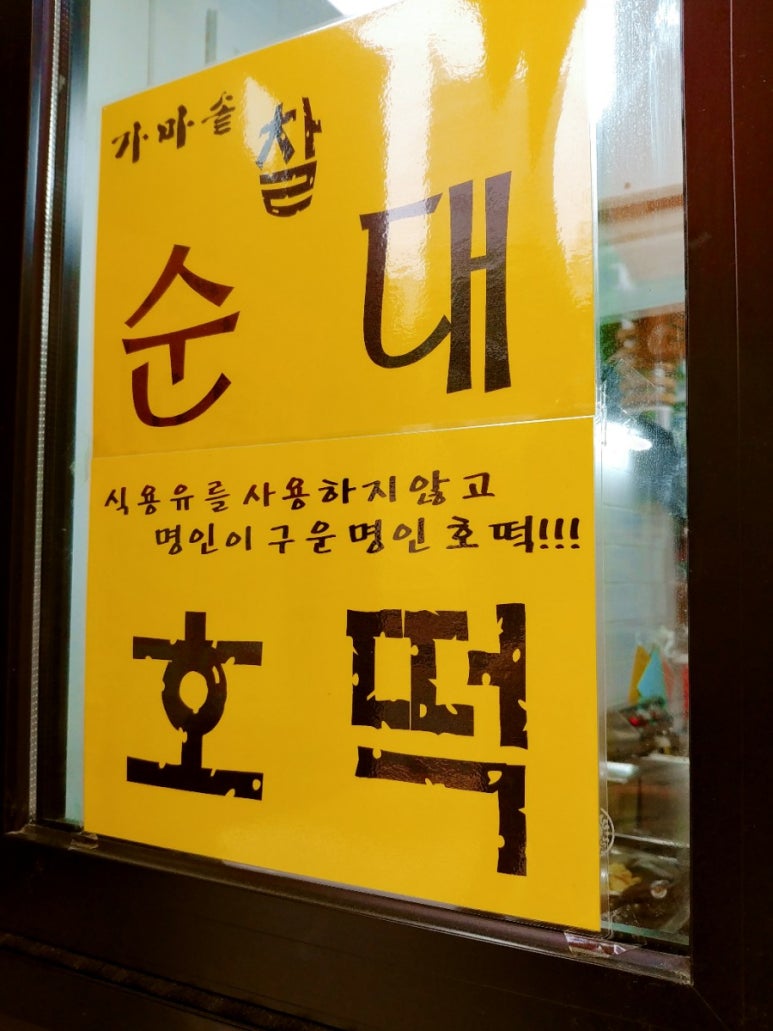 가마솥 찰
순대
식용유를 사용하지않고
명인이 구운 명인 호떡!!!
호떡